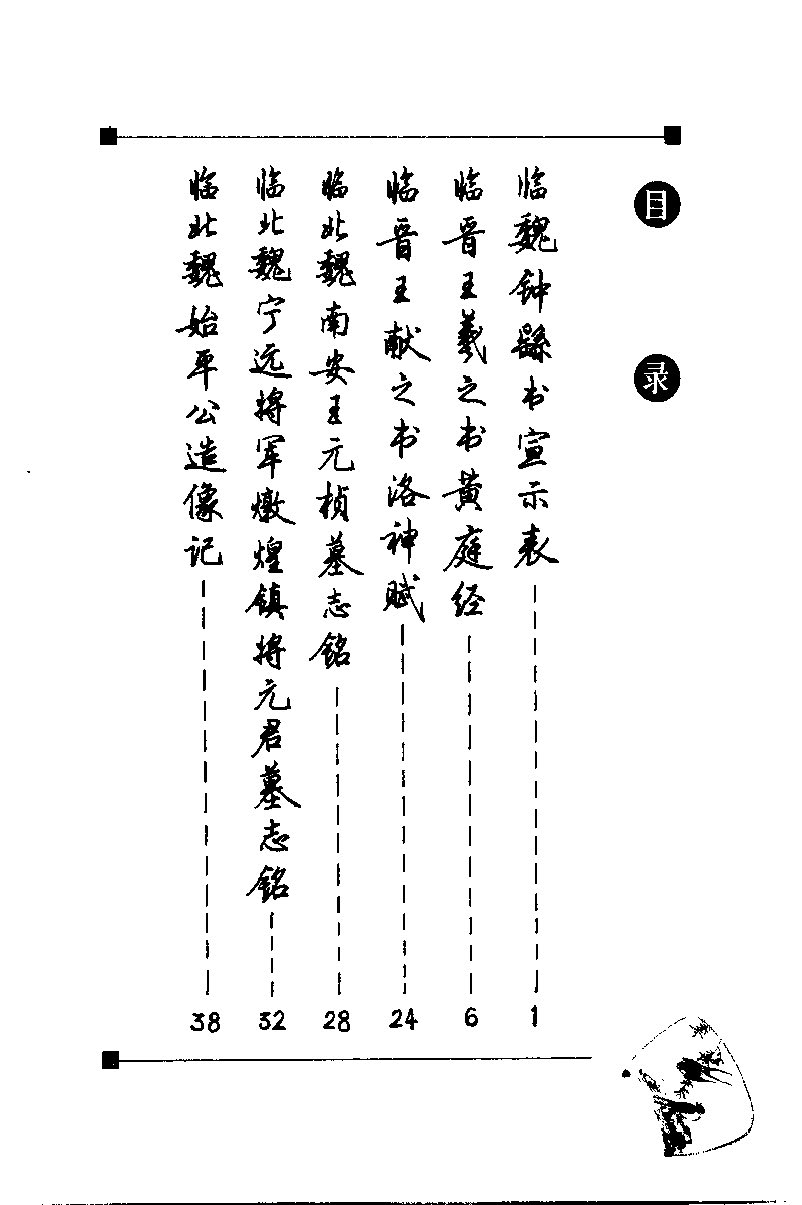 目录
临魏钟繇书宣示表 1
临晋王羲之书黄庭经 6
临晋王献之书洛神赋 24
临北魏南安王元桢墓志铭 28
临北魏宁远将军燉煌镇将元君墓志铭 32
临北魏始平公造像记 38